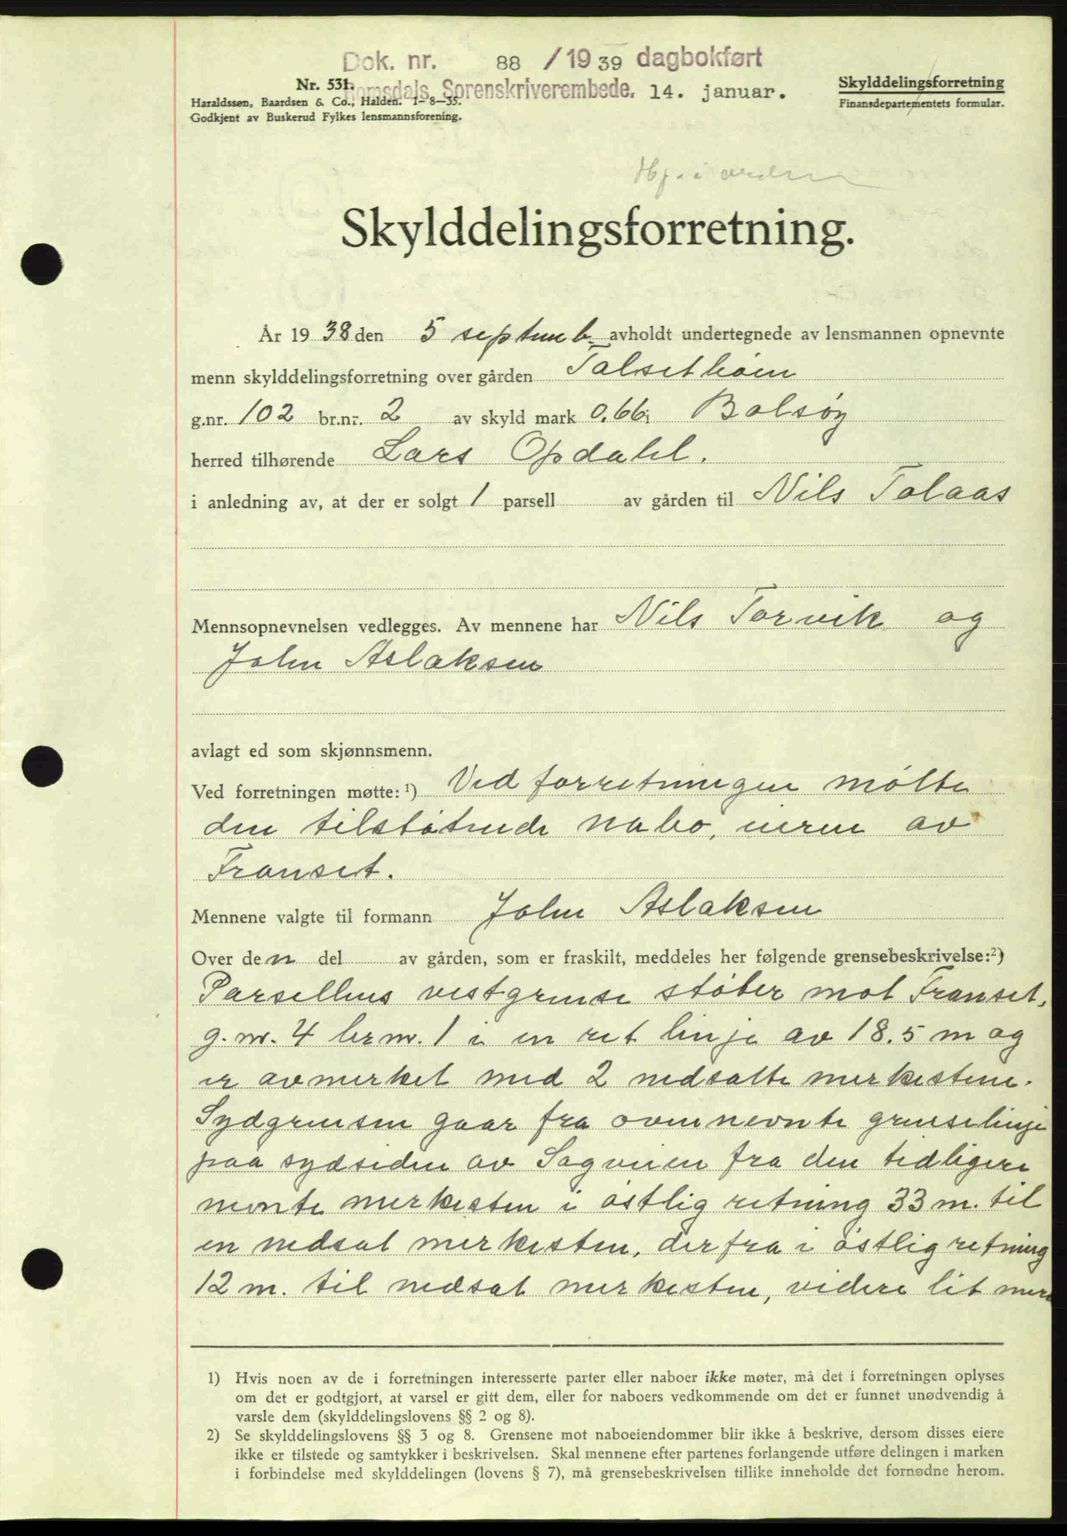 Dok. nr. 88 / 19 39 dagbokført
Nr. 531. Romsdals Sorenskriverembede. 14. januar.
Haraldssøn, Baardsen & Co., Halden. 1-8-35.
Godkjent av Buskerud Fylkes lensmannsforening.
Skylddelingsforretning
Finansdepartementets formular.
Hj. i orden
Skylddelingsforretning.
År 19 38 den 5 septemb. avholdt undertegnede av lensmannen opnevnte
menn skylddelingsforretning over gården Talsethöen
g.nr. 102 br.nr. 2 av skyld mark 0.66 i Bolsøy
herred tilhørende Lars Opdahl.
i anledning av, at der er solgt 1 parsell av gården til Nils Talaas
Mennsopnevnelsen vedlegges. Av mennene har Nils Torvik og
John Aslaksen
avlagt ed som skjønnsmenn.
Ved forretningen møtte: ¹) Ved forretningen møtte
den tilstøtende nabo, eieren av
Franset.
Mennene valgte til formann John Aslaksen
Over den del av gården, som er fraskilt, meddeles her følgende grensebeskrivelse:²)
Parsellens vestgrense støter mot Franset,
g. nr. 4 br nr. 1 i en ret linje av 18.5 m og
er avmerket med 2 nedsatte merkestene.
Sydgrensen gaar fra ovennevnte grenselinje
paa sydsiden av Sagveien fra den tidligere
nevnte merkesten i östlig retning 33 m. til
en nedsat merkesten, derfra i östlig retning
12 m. til nedsat merkesten, videre lit mere
1) Hvis noen av de i forretningen interesserte parter eller naboer ikke møter, må det i forretningen oplyses
om det er godtgjort, at varsel er gitt dem, eller for naboers vedkommende om det er funnet unødvendig å
varsle dem (skylddelingslovens §§ 2 og 8).
2) Se skylddelingslovens §§ 3 og 8. Grensene mot naboeiendommer blir ikke å beskrive, dersom disses eiere
ikke er tilstede og samtykker i beskrivelsen. Skal mennene efter partenes forlangende utføre delingen i marken
i forbindelse med skylddelingen (lovens § 7), må grensebeskrivelsen tillike inneholde det fornødne herom.